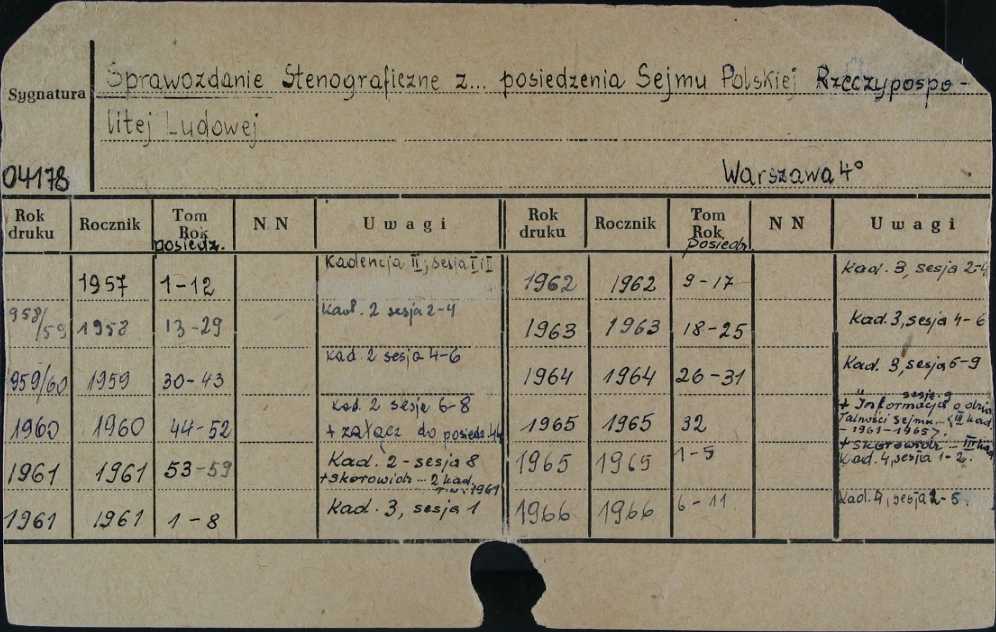 Sprawozdanie Stenograficzne z... posiedzenia Sejmu Polskiej Rzeczypospo-
Sygnatura
litej Ludowej
04178 Warszawa 4°
Rok druku Rocznik Tom Rok posiedz. NN Uwagi Rok druku Rocznik Tom Rok Posiedz. NN Uwagi
1957 1-12 Kadencja II; sesja I i II 1962 1962 9-17 Kad. 3, sesja 2-4
958/59 1958 13-29 Kad. 2 sesja 2-4 1963 1963 18-25 Kad. 3, sesja 4-6
959/60 1959 30-43 Kad. 2 sesja 4-6 1964 1964 26-31 Kad. 3, sesja 6-9
1960 1960 44-52 Kad. 2 sesja 6-8 1965 1965 32 sesja 9
+ załącz do posiedz. 44 + Informacja o dzia
łalności Sejmu III kad.
-1961-1965
1961 1961 53-59 Kad. 2 - sesja 8 1965 1965 1-5 + Skorowidz - III kad
+ Skorowidz - 2 kad. Kad. 4, sesja 1-2.
1961
1961 1961 1-8 Kad. 3, sesja 1 1966 1966 6-11 Kad. 4, sesja 2-5.